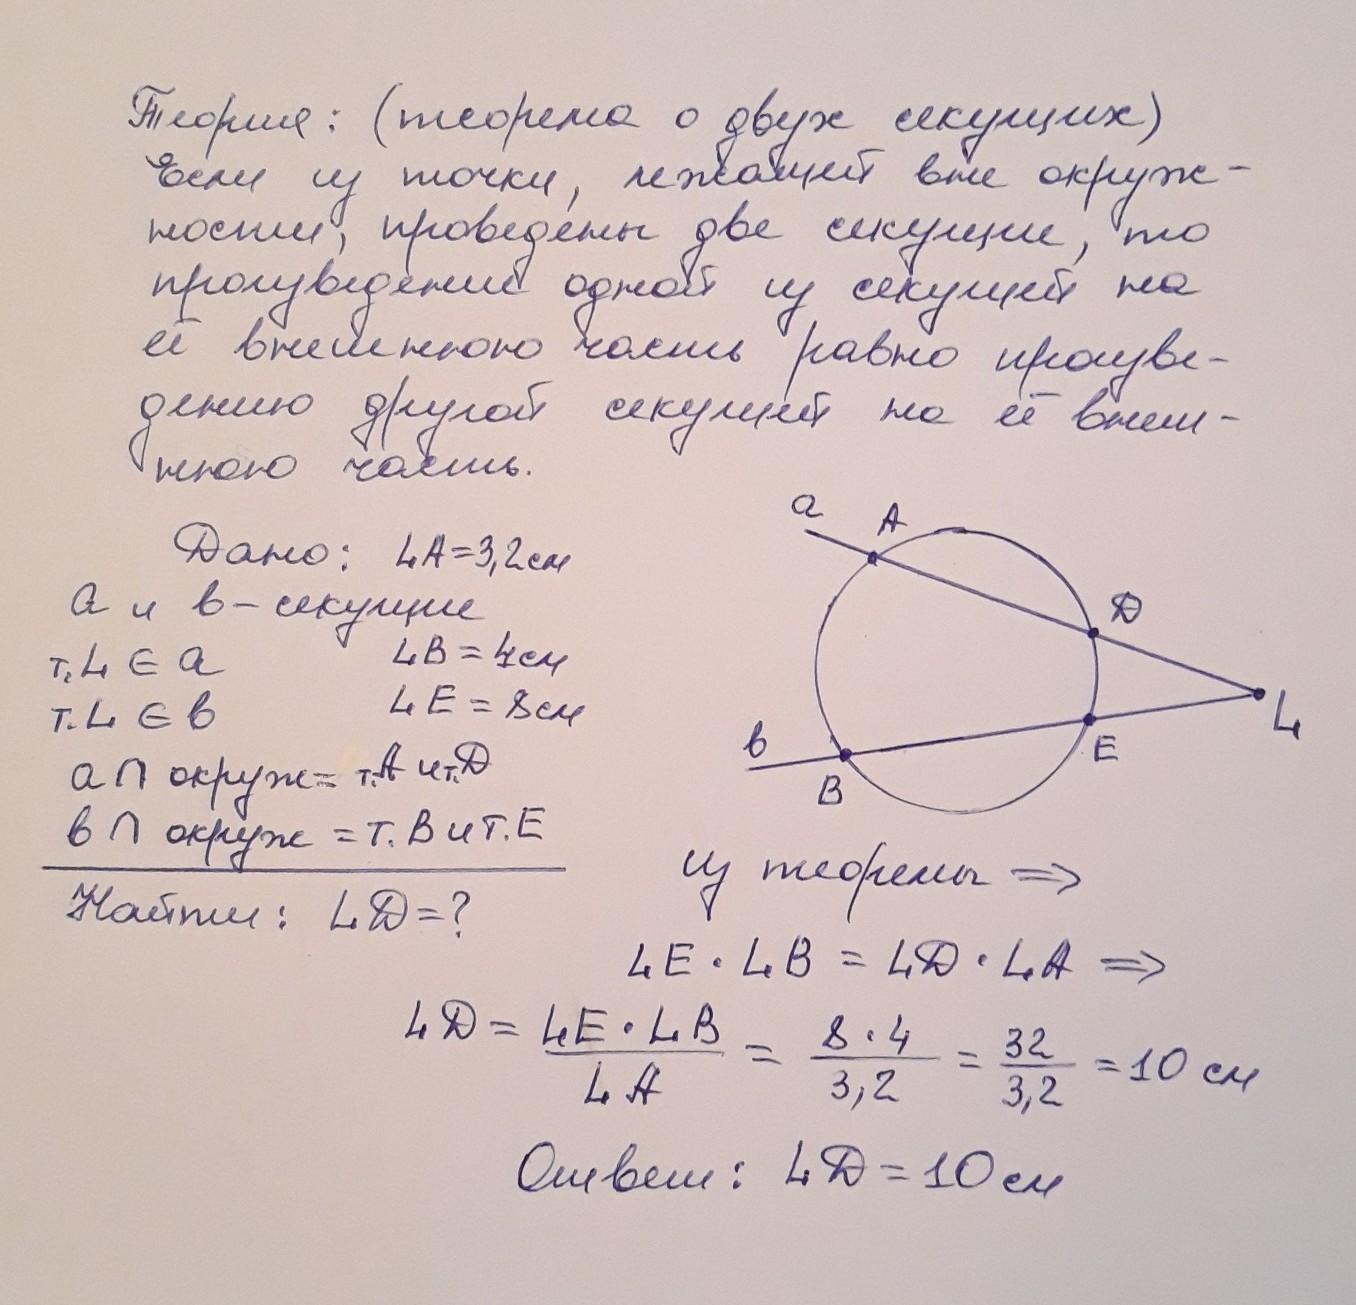 Теория: (теорема о двух секущих)
Если из точки, лежащей вне окруж-
ности, проведены две секущие, то
произведение одной из секущей на
её внешнюю часть равно произве-
дению другой секущей на её внеш-
нюю часть.
Дано: LA=3,2см
a и b-секущие
т.L ∈ a LB=4см
т.L ∈ b LE=8см
a ∩ окруж= т.A и т.D
b ∩ окруж = т.B и т.E
Найти: LD=?
a A
D
L
b B E
из теоремы ⇒
LE · LB = LD · LA ⇒
LD = LE · LB / LA = 8 · 4 / 3,2 = 32 / 3,2 = 10 см
Ответ: LD=10см